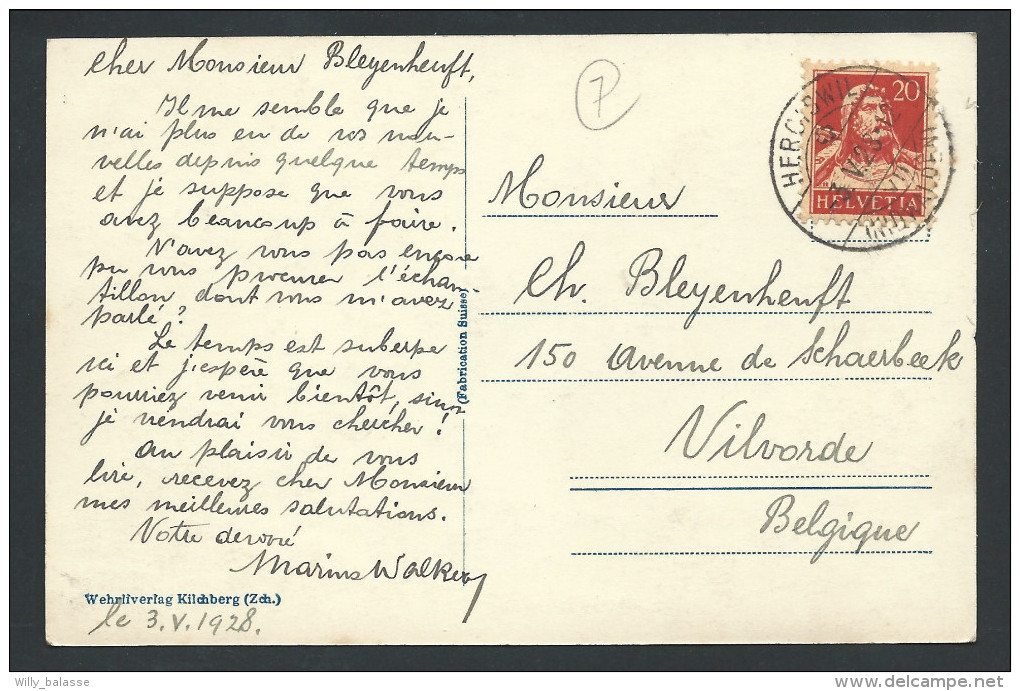 Cher Monsieur Bleyenheuft,
Il me semble que je
n'ai plus eu de vos nou-
velles depuis quelque temps
et je suppose que vous
avez beaucoup à faire.
N'avez vous pas encore
pu vous procurer l'échan-
tillon dont vous m'avez
parlé?
Le temps est suberpe
ici et j'espère que vous
pourriez venir bientôt, sinon
je viendrai vous chercher!
Au plaisir de vous
lire, recevez cher Monsieur
mes meilleures salutations.
Votre dévoué
Marius Walker
Wehrliverlag Kilchberg (Zch.)
le 3.V.1928.
(Fabrication Suisse)
7
20
HELVETIA
HERGISWIL
Monsieur
Ch. Bleyenheuft
150 Avenue de Schaerbeek
Vilvorde
Belgique
Willy_balasse
delcampe.net